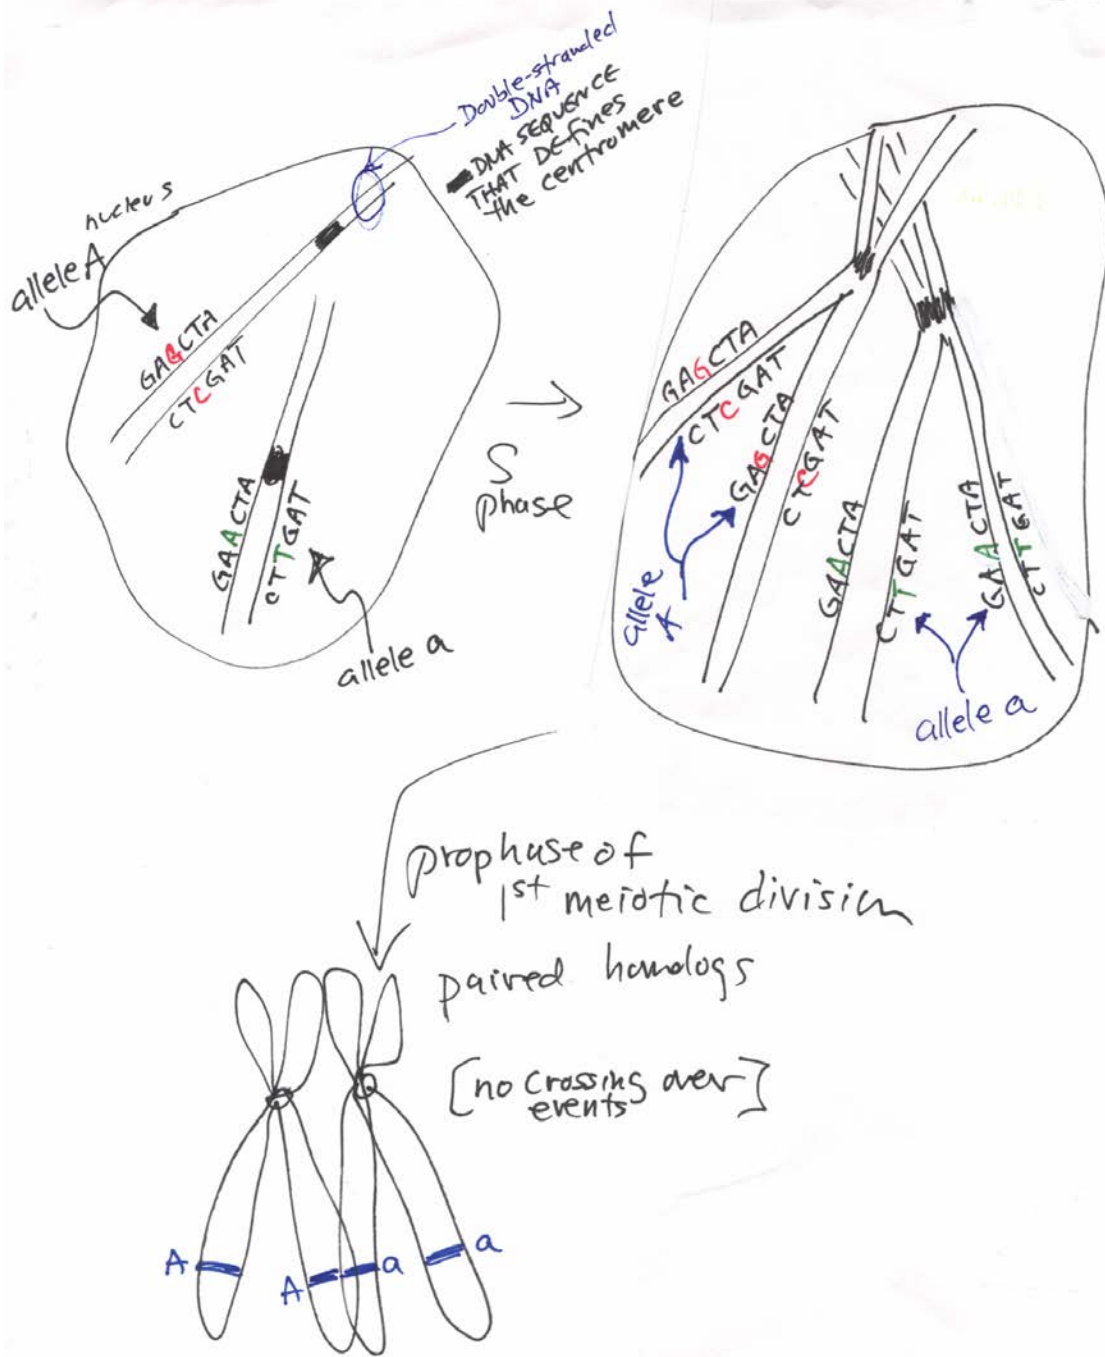 Double-stranded
DNA
DNA SEQUENCE
THAT DEFINES
the centromere
nucleus
allele A
GAGCTA
CTCGAT
GAACTA
CTTGAT
allele a
S
phase
GAGCTA
CTCGAT
GAGCTA
CTCGAT
allele
A
GAACTA
CTTGAT
GAACTA
CTTGAT
allele a
prophase of
1st meiotic division
paired homologs
[no crossing over
events]
A
A
a
a